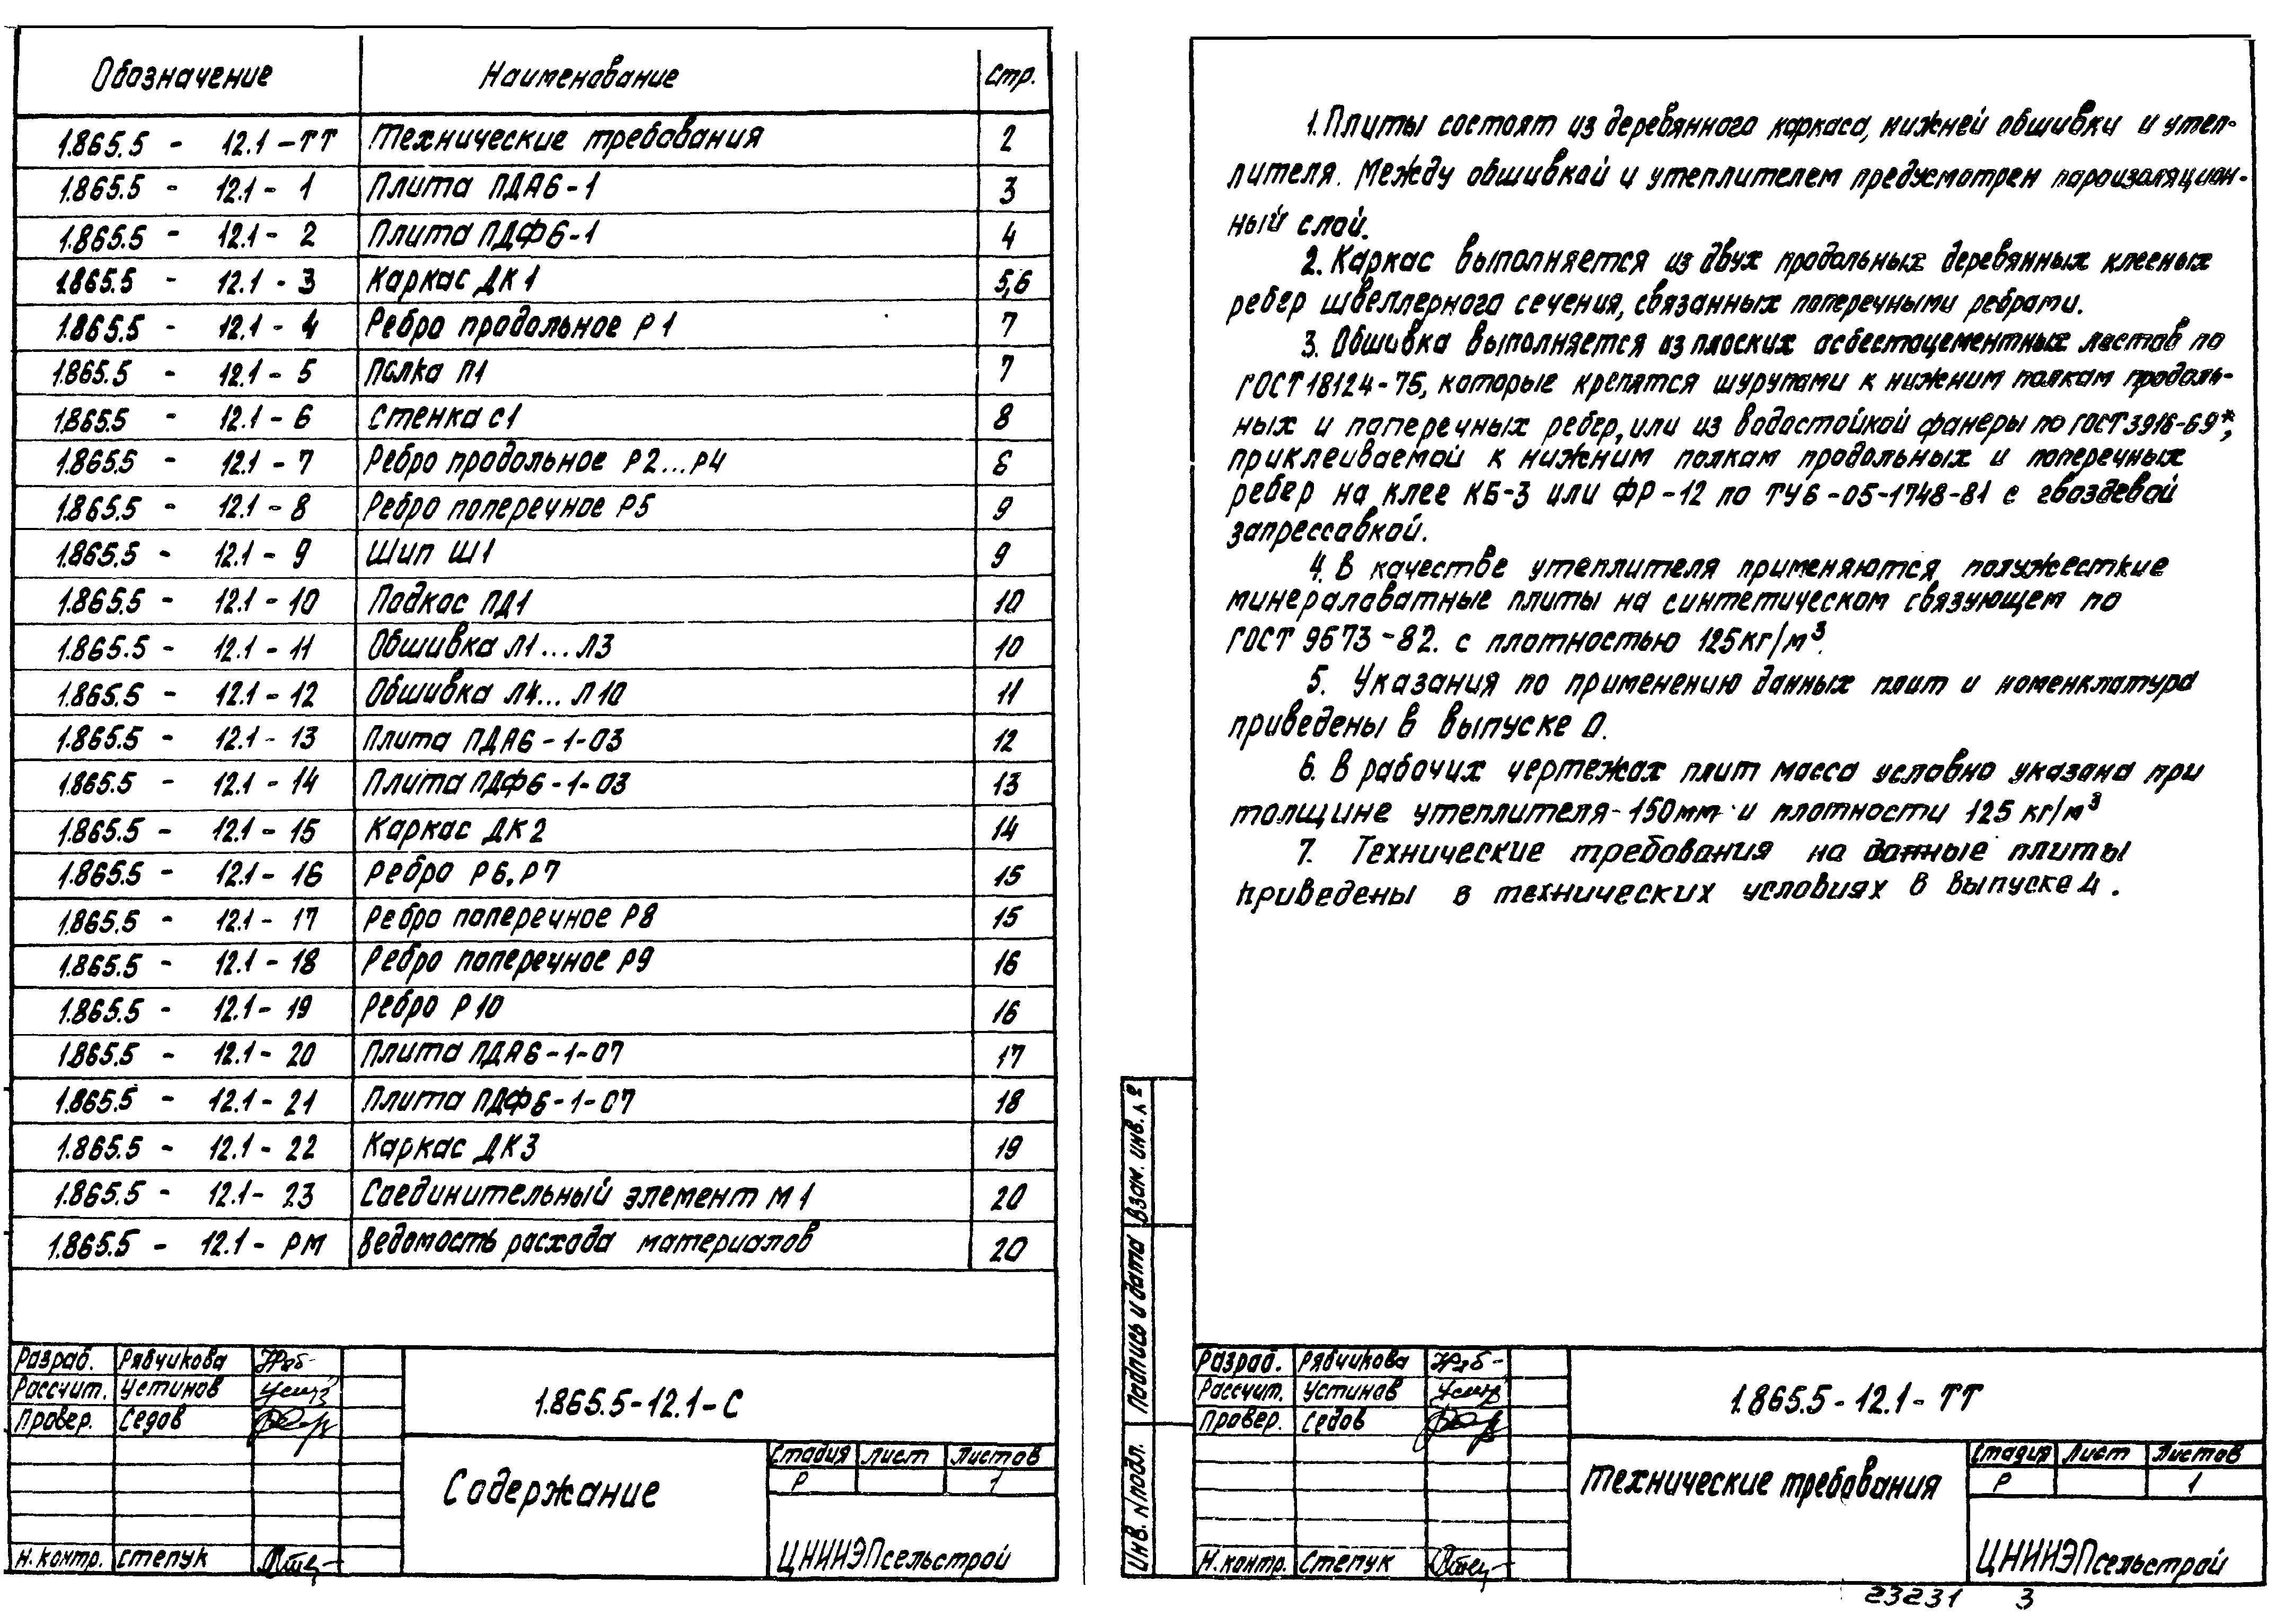 Обозначение Наименование Стр.
1.865.5 - 12.1 - ТТ Технические требования 2
1.865.5 - 12.1 - 1 Плита ПДА6-1 3
1.865.5 - 12.1 - 2 Плита ПДФ6-1 4
1.865.5 - 12.1 - 3 Каркас ДК1 5,6
1.865.5 - 12.1 - 4 Ребро продольное Р1 7
1.865.5 - 12.1 - 5 Полка П1 7
1.865.5 - 12.1 - 6 Стенка С1 8
1.865.5 - 12.1 - 7 Ребро продольное Р2...Р4
1.865.5 - 12.1 - 8 Ребро поперечное Р5 9
1.865.5 - 12.1 - 9 Шип Ш1 9
1.865.5 - 12.1 - 10 Подкос ПД1 10
1.865.5 - 12.1 - 11 Обшивка Л1...Л3 10
1.865.5 - 12.1 - 12 Обшивка Л4...Л10 11
1.865.5 - 12.1 - 13 Плита ПДА6-1-03 12
1.865.5 - 12.1 - 14 Плита ПДФ6-1-03 13
1.865.5 - 12.1 - 15 Каркас ДК2 14
1.865.5 - 12.1 - 16 Ребро Р6, Р7 15
1.865.5 - 12.1 - 17 Ребро поперечное Р8 15
1.865.5 - 12.1 - 18 Ребро поперечное Р9 16
1.865.5 - 12.1 - 19 Ребро Р10 16
1.865.5 - 12.1 - 20 Плита ПДА6-1-07 17
1.865.5 - 12.1 - 21 Плита ПДФ6-1-07 18
1.865.5 - 12.1 - 22 Каркас ДК3 19
1.865.5 - 12.1 - 23 Соединительный элемент М1 20
1.865.5 - 12.1 - РМ Ведомость расхода материалов 20
Разраб. Рябчикова
Рассчит. Устинов
Провер. Седов
Н.контр. Степук
1.865.5-12.1-С
Содержание
Стадия Лист Листов
Р 1
ЦНИИЭПсельстрой
1. Плиты состоят из деревянного каркаса, нижней обшивки и утеп-
лителя. Между обшивкой и утеплителем предусмотрен пароизоляцион-
ный слой.
2. Каркас выполняется из двух продольных деревянных клееных
ребер швеллерного сечения, связанных поперечными ребрами.
3. Обшивка выполняется из плоских асбестоцементных листов по
ГОСТ 18124-75, которые крепятся шурупами к нижним полкам продоль-
ных и поперечных ребер, или из водостойкой фанеры по ГОСТ 3916-69*,
приклеиваемой к нижним полкам продольных и поперечных
ребер на клее КБ-3 или ФР-12 по ТУ6-05-1748-81 с гвоздевой
запрессовкой.
4. В качестве утеплителя применяются полужесткие
минераловатные плиты на синтетическом связующем по
ГОСТ 9573-82. с плотностью 125кг/м³.
5. Указания по применению данных плит и номенклатура
приведены в выпуске 0.
6. В рабочих чертежах плит масса условно указана при
толщине утеплителя-150мм и плотности 125 кг/м³
7. Технические требования на данные плиты
приведены в технических условиях в выпуске 4.
Взам. инв. №
Подпись и дата
Инв. № подл.
Разраб. Рябчикова
Рассчит. Устинов
Провер. Седов
Н.контр. Степук
1.865.5-12.1-ТТ
Технические требования
Стадия Лист Листов
Р 1
ЦНИИЭПсельстрой
23231 3